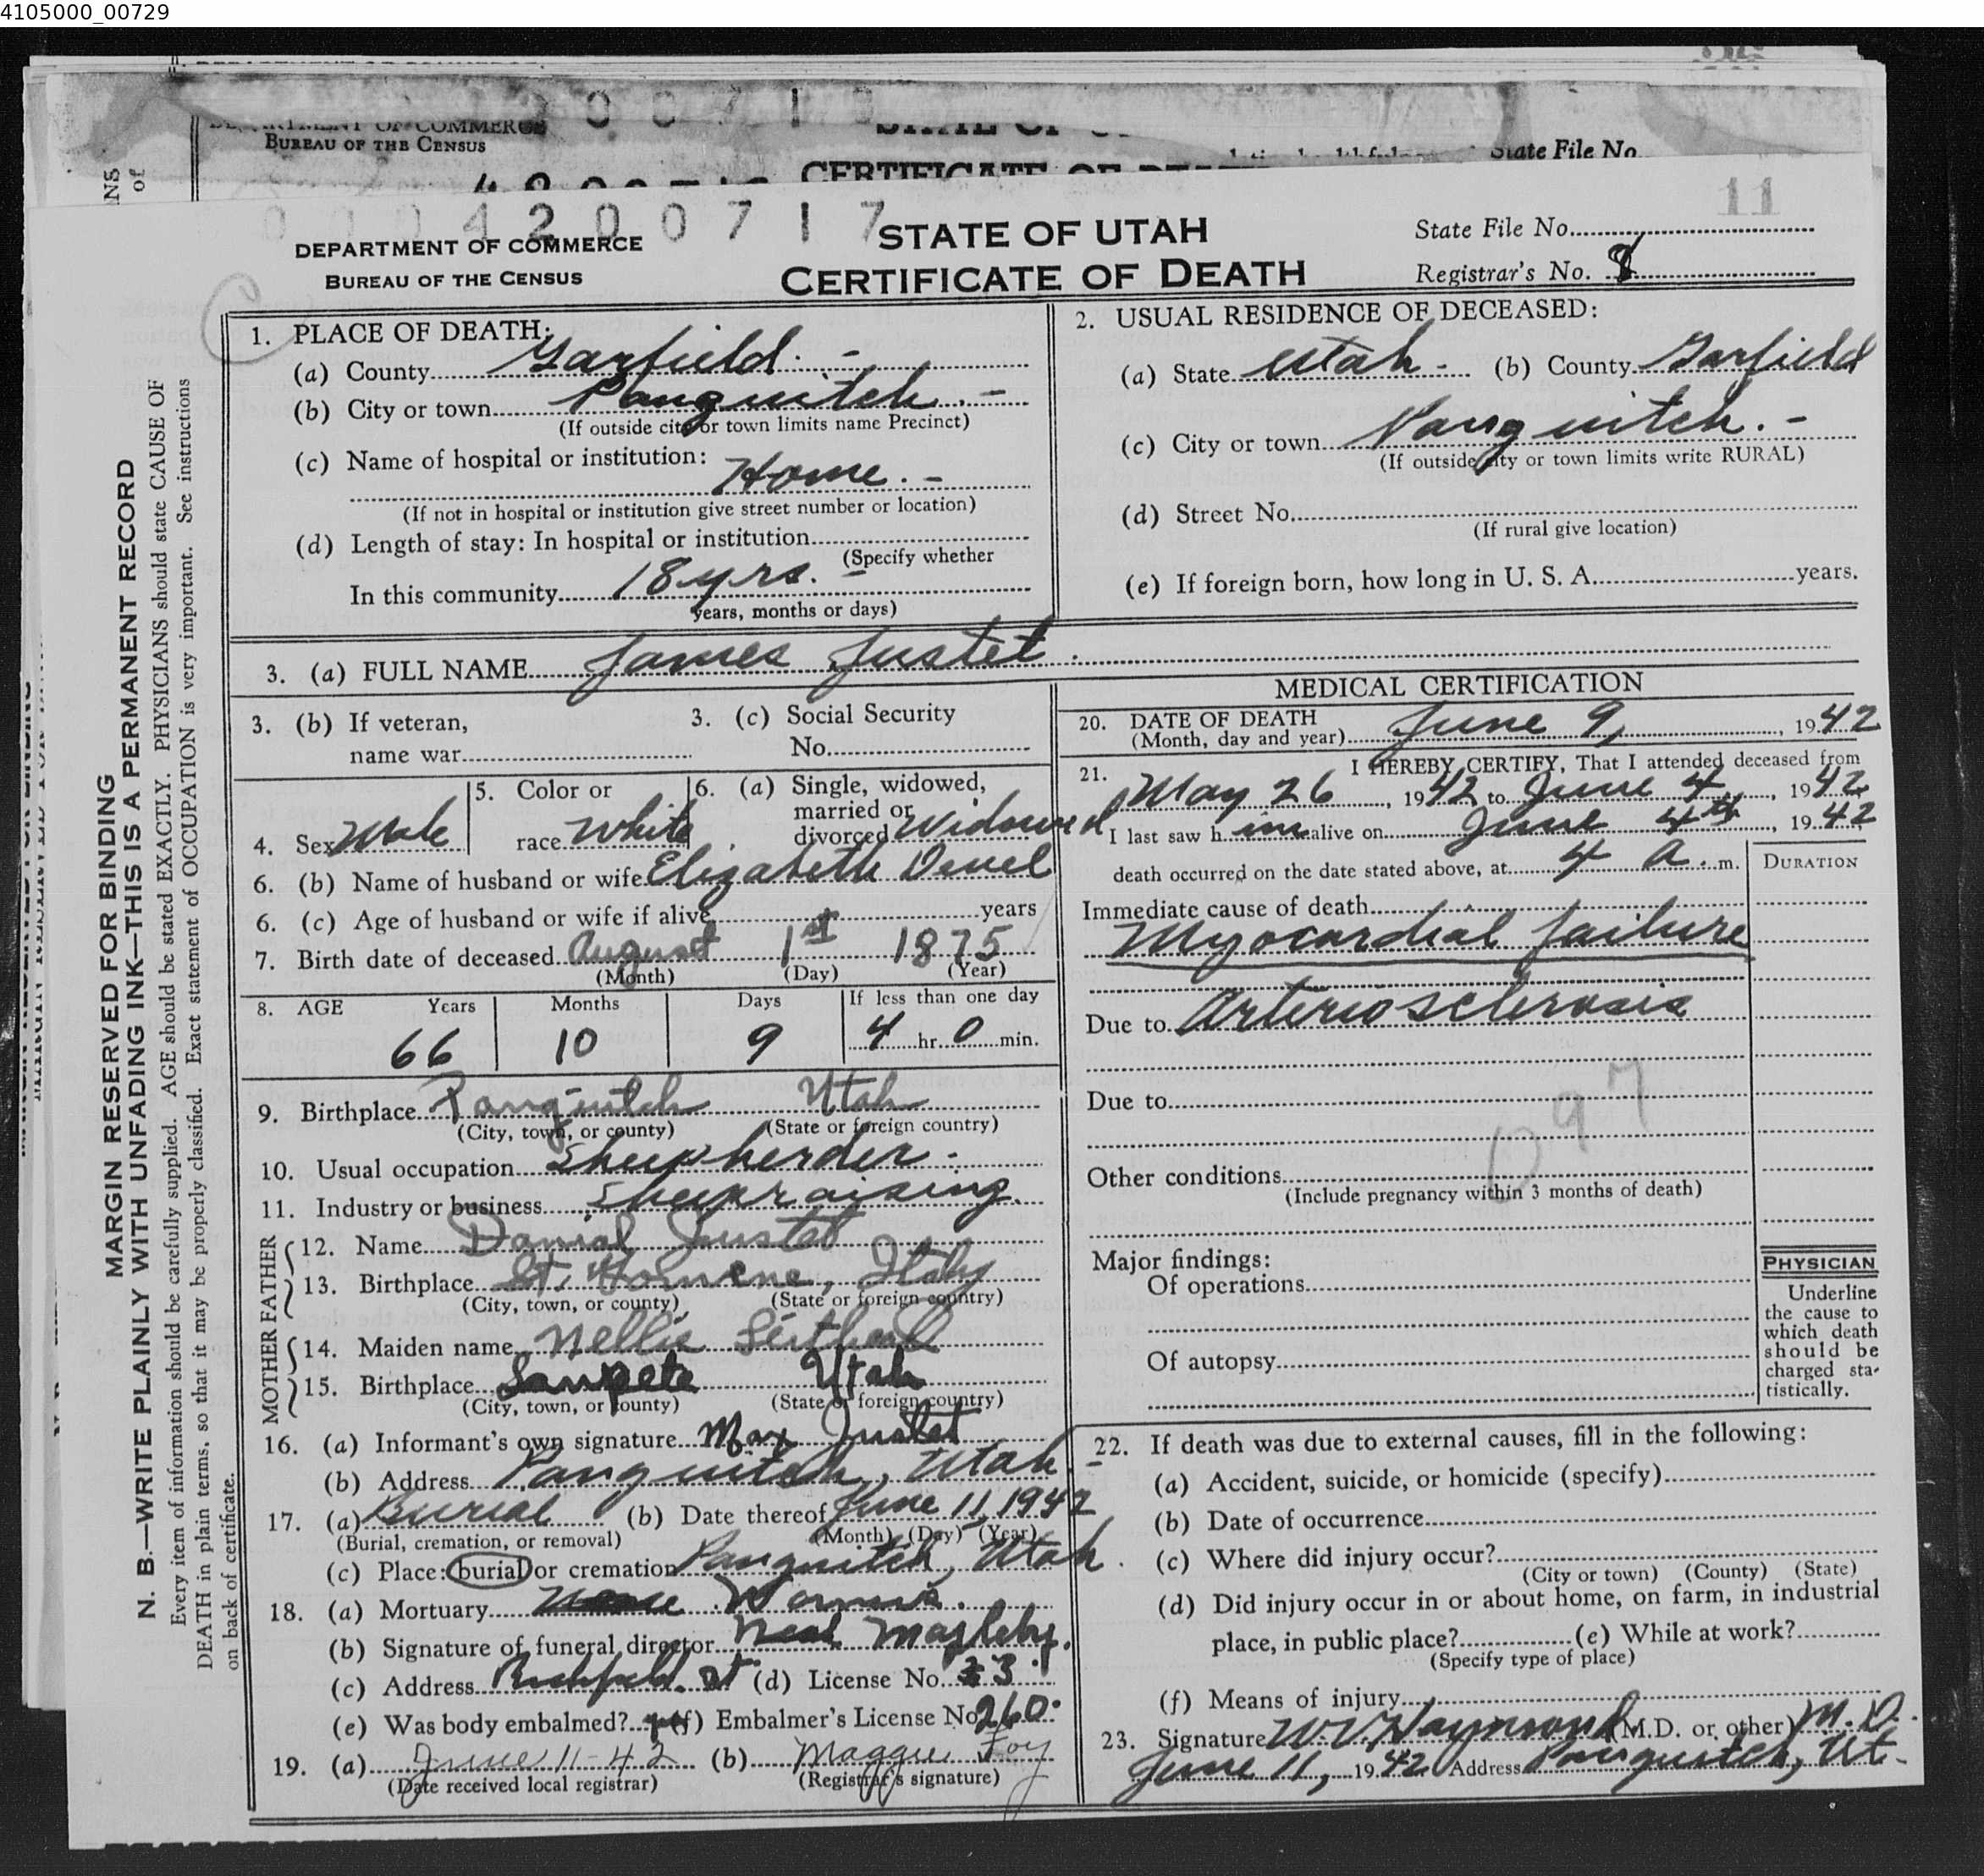 4105000_00729
DEPARTMENT OF COMMERCE
BUREAU OF THE CENSUS
CERTIFICATE OF
State File No.
0004200717
11
DEPARTMENT OF COMMERCE
BUREAU OF THE CENSUS
STATE OF UTAH
CERTIFICATE OF DEATH
State File No.
Registrar's No. 8
MARGIN RESERVED FOR BINDING
N. B.—WRITE PLAINLY WITH UNFADING INK—THIS IS A PERMANENT RECORD
Every item of information should be carefully supplied. AGE should be stated EXACTLY. PHYSICIANS should state CAUSE OF
DEATH in plain terms, so that it may be properly classified. Exact statement of OCCUPATION is very important. See instructions
on back of certificate.
1. PLACE OF DEATH:
(a) County Garfield. -
(b) City or town Panguitch. -
(If outside city or town limits name Precinct)
(c) Name of hospital or institution:
Home. -
(If not in hospital or institution give street number or location)
(d) Length of stay: In hospital or institution
(Specify whether
In this community 18 yrs. -
years, months or days)
2. USUAL RESIDENCE OF DECEASED:
(a) State Utah - (b) County Garfield
(c) City or town Panguitch. -
(If outside city or town limits write RURAL)
(d) Street No.
(If rural give location)
(e) If foreign born, how long in U. S. A. years.
3. (a) FULL NAME James Justet.
3. (b) If veteran,
name war
3. (c) Social Security
No.
4. Sex Male
5. Color or
race White
6. (a) Single, widowed,
married or
divorced Widowed
6. (b) Name of husband or wife Elizabeth Deuel
6. (c) Age of husband or wife if alive years
7. Birth date of deceased August 1st 1875
(Month) (Day) (Year)
8. AGE Years Months Days If less than one day
66 10 9 4 hr. 0 min.
9. Birthplace Panguitch Utah
(City, town, or county) (State or foreign country)
10. Usual occupation Sheepherder.
11. Industry or business Sheepraising
FATHER
12. Name Danial Justet
13. Birthplace St. Italy
(City, town, or county) (State or foreign country)
MOTHER
14. Maiden name Nellie
15. Birthplace Sanpete Utah
(City, town, or county) (State or foreign country)
16. (a) Informant's own signature Max Justet
(b) Address Panguitch, Utah.
17. (a) Burial (b) Date thereof June 11, 1942
(Burial, cremation, or removal) (Month) (Day) (Year)
(c) Place: burial or cremation Panguitch, Utah.
18. (a) Mortuary
(b) Signature of funeral director Neal Magleby.
(c) Address Richfield. Ut (d) License No. 33
(e) Was body embalmed? yes (f) Embalmer's License No. 260
19. (a) June 11-42 (b) Maggie Foy
(Date received local registrar) (Registrar's signature)
MEDICAL CERTIFICATION
20. DATE OF DEATH
(Month, day and year) June 9, 1942
21. I HEREBY CERTIFY, That I attended deceased from
May 26, 1942 to June 4, 1942
I last saw h im alive on June 4th, 1942
death occurred on the date stated above, at 4 a.m.
DURATION
Immediate cause of death
Myocardial failure
Due to Arteriosclerosis
Due to
097
Other conditions
(Include pregnancy within 3 months of death)
Major findings:
Of operations
Of autopsy
PHYSICIAN
Underline
the cause to
which death
should be
charged sta-
tistically.
22. If death was due to external causes, fill in the following:
(a) Accident, suicide, or homicide (specify)
(b) Date of occurrence
(c) Where did injury occur?
(City or town) (County) (State)
(d) Did injury occur in or about home, on farm, in industrial
place, in public place? (e) While at work?
(Specify type of place)
(f) Means of injury
23. Signature W. Haymond (M.D. or other) M.D.
June 11, 1942 Address Panguitch, Ut.